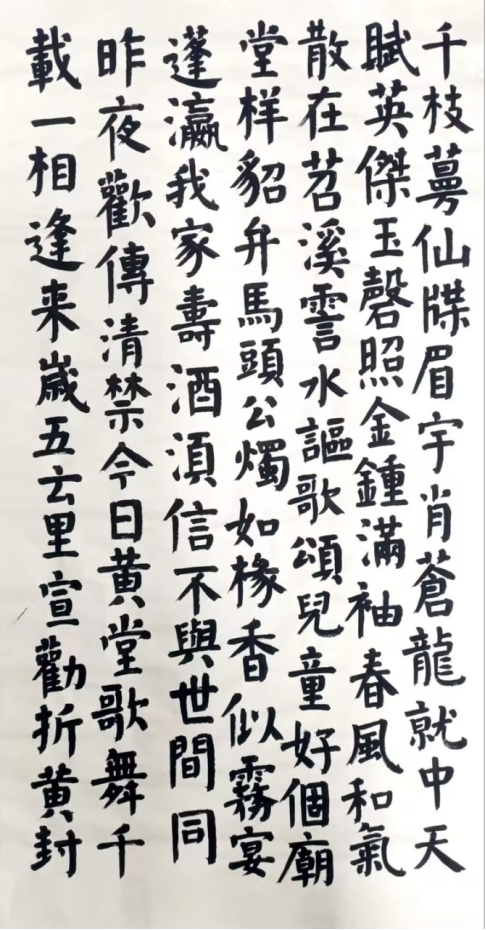 千枝蕚仙牒眉宇肖蒼龍就中天
賦英傑玉磬照金鍾滿袖春風和氣
散在苕溪霅水謳歌頌兒童好個廟
堂样貂弁馬頭公燭如椽香似霧宴
蓬瀛我家壽酒湏信不與世間同
昨夜歡傳清禁今日黄堂歌舞千
載一相逢来歲五云里宣勸折黄封